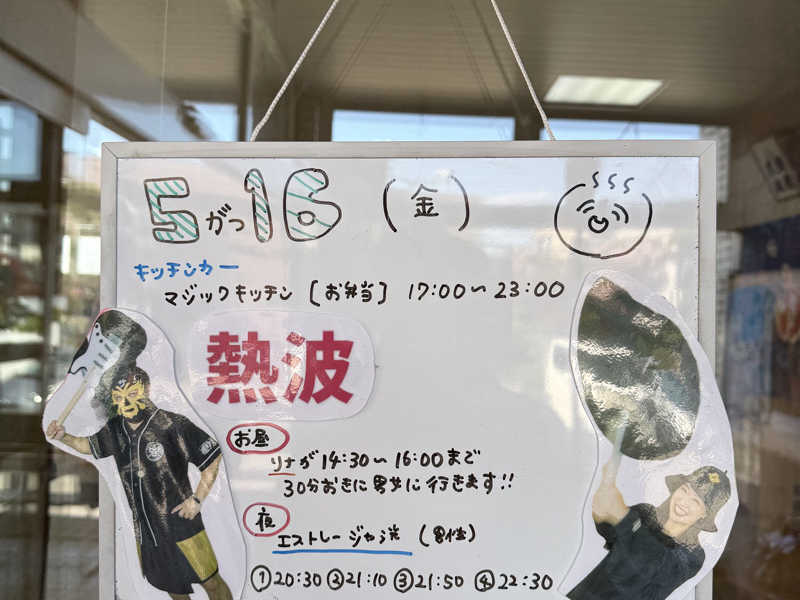 5がつ16 (金)
キッチンカー
マジックキッチン [お弁当] 17:00〜23:00
熱波
お昼
リナが14:30〜16:00まで
30分おきに男女に行きます!!
夜
エストレージャ渋 (男性)
①20:30 ②21:10 ③21:50 ④22:30